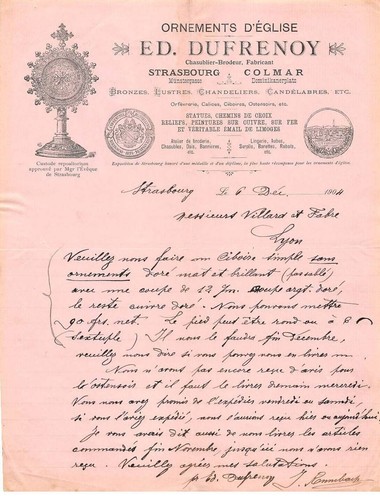 ORNEMENTS D'ÉGLISE
ED. DUFRENOY
Chasublier-Brodeur, Fabricant
STRASBOURG COLMAR
Münstergasse Dominikanerplatz
BRONZES, LUSTRES, CHANDELIERS, CANDÉLABRES, ETC.
Orfèvrerie, Calices, Ciboires, Ostensoirs, etc.
STATUES, CHEMINS DE CROIX
RELIEFS, PEINTURES SUR CUIVRE, SUR FER
ET VÉRITABLE EMAIL DE LIMOGES
Atelier de broderie,
Chasubles, Dais, Bannières,
Lingerie, Aubes,
Surplis, Barrettes, Rabats,
etc.
Custode reposition
approuvé par Mgr l'Évêque
de Strasbourg
Exposition de Strasbourg honoré d'une médaille et d'un diplôme, la plus haute récompense pour les ornements d'église.
Strasbourg le 6 Déc. 1904
Messieurs Villard et Fabre
Lyon
Veuillez nous faire un Ciboire simple sans
ornements doré mat et brillant (passable)
avec une coupe de 12 /m. Coupe argt. doré,
le reste cuivre doré. Nous pouvons mettre
90 frs. net. Le pied peut être rond ou à 6
Il nous le faudra fin Decembre,
veuillez nous dire si vous pouvez nous en livrer un.
Nous n'avons pas encore reçu d'avis pour
l'ostensoir et il faut le livrer demain mercredi.
Vous nous avez promis de l'expédier vendredi ou samedi
si vous l'aviez expédié, nous l'aurions reçu hier ou aujourd'hui.
Je vous avais dit aussi de nous livrer les articles
commandés fin Novembre, jusqu'ici nous n'avons rien
reçu. Veuillez agréer mes salutations.
p. Ed. Dufrenoy